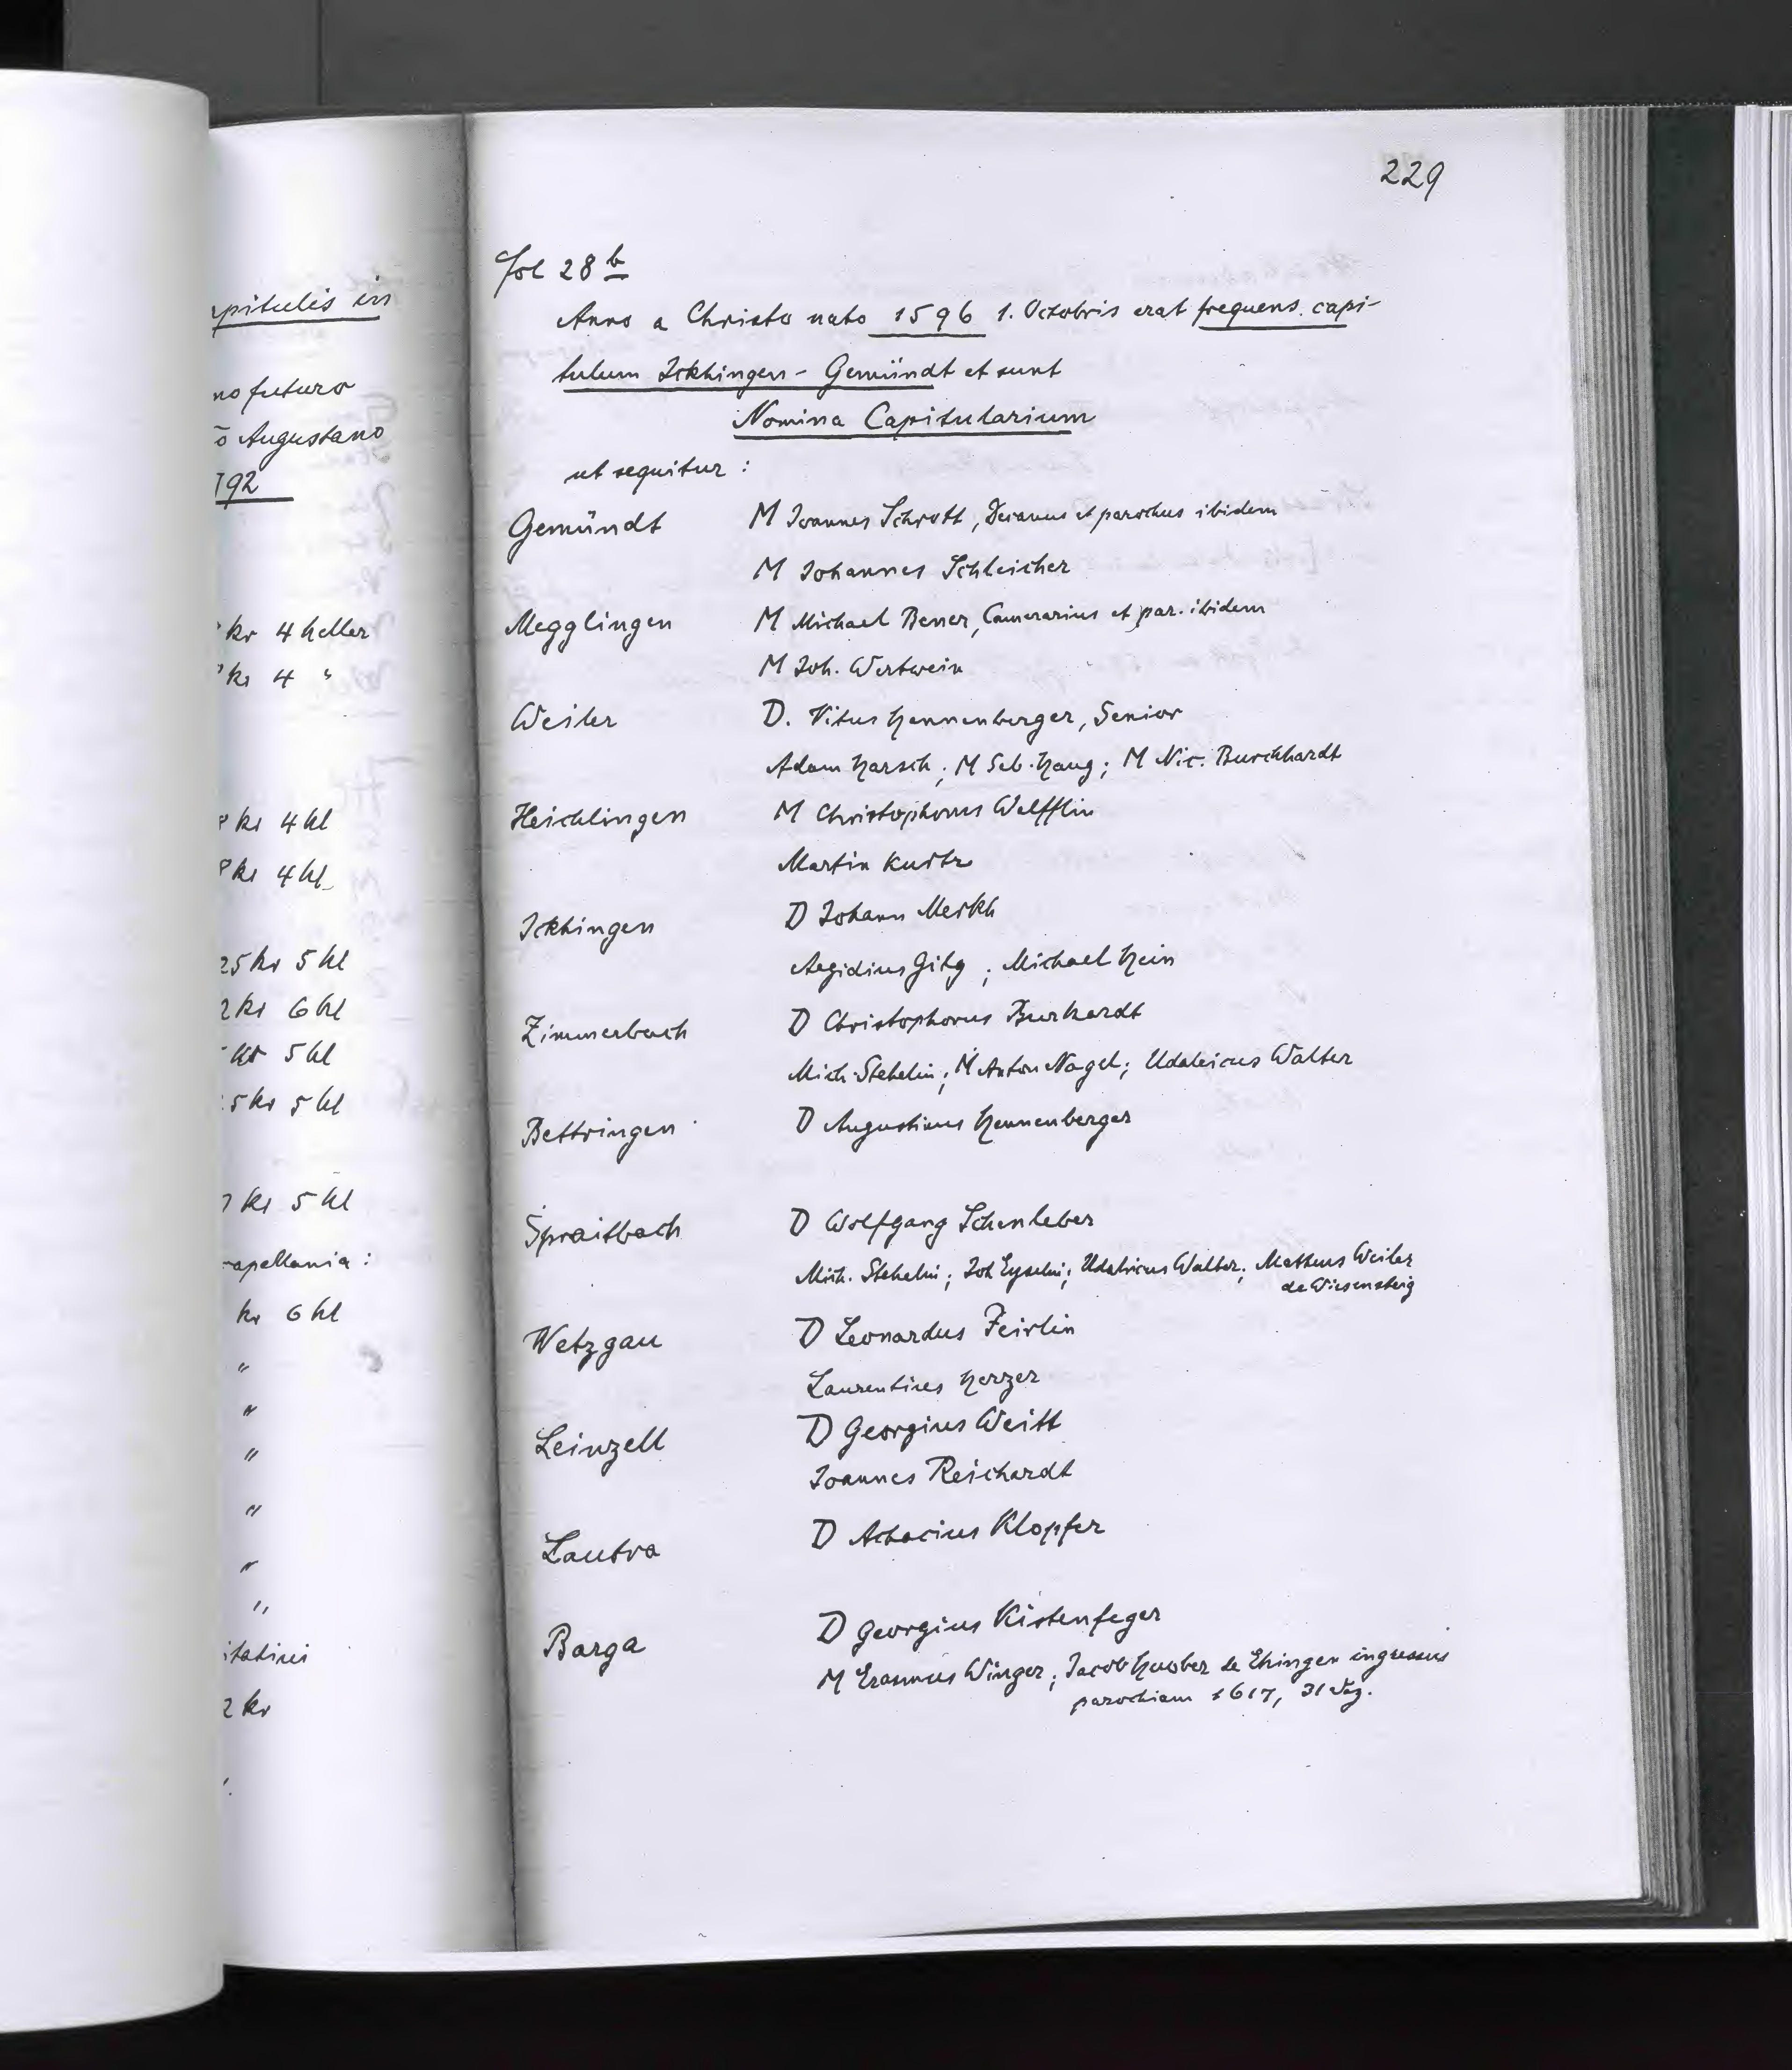 apitulis in
no futuro
ō Augustano
792
kr 4 heller
kr 4 "
kr 4 hl
kr 4 hl
25 kr 5 hl
2 kr 6 hl
kr 5 hl
5 kr 5 hl
kr 5 hl
capellania :
kr 6 hl
"
"
"
"
"
"
itatini
2 kr
229
fol 28 b
Anno a Christo nato 1596 1. Octobris erat frequens capi-
tulum Ickhingen - Gemündt et sunt
Nomina Capitularium
ut sequitur :
Gemündt M Joannes Schrott, Decanus et parochus ibidem
M Johannes Schleicher
Megglingen M Michael Bener, Camerarius et par. ibidem
M Joh. Wertwein
Weiler D. Vitus Hennenberger, Senior
Adam Harsch ; M Seb. Haug ; M Nic. Burckhardt
Heichlingen M Christophorus Welfflin
Martin Kurtz
Ickhingen D Johann Merkh
Aegidius Gilg ; Michael Hein
Zimmerbach D Christophorus Burkhardt
Mich. Stehelin ; M Anton Nagel ; Udalricus Walter
Bettringen D Augustinus Hennenberger
Spraitbach D Wolfgang Schenleber
Mich. Stehelin ; Joh Eyselin ; Udalricus Walter ; Mattheus Weiler
de Wiesensteig
Wetzgau D Leonardus Feirlin
Laurentius Herzer
Leinzell D Georgius Weitt
Joannes Reichardt
Lautra D Achacius Klopfer
Barga D Georgius Kistenfeger
M Erasmus Winger ; Jacob Huober de Ehingen ingressus
parochiam 1617, 31 Dez.